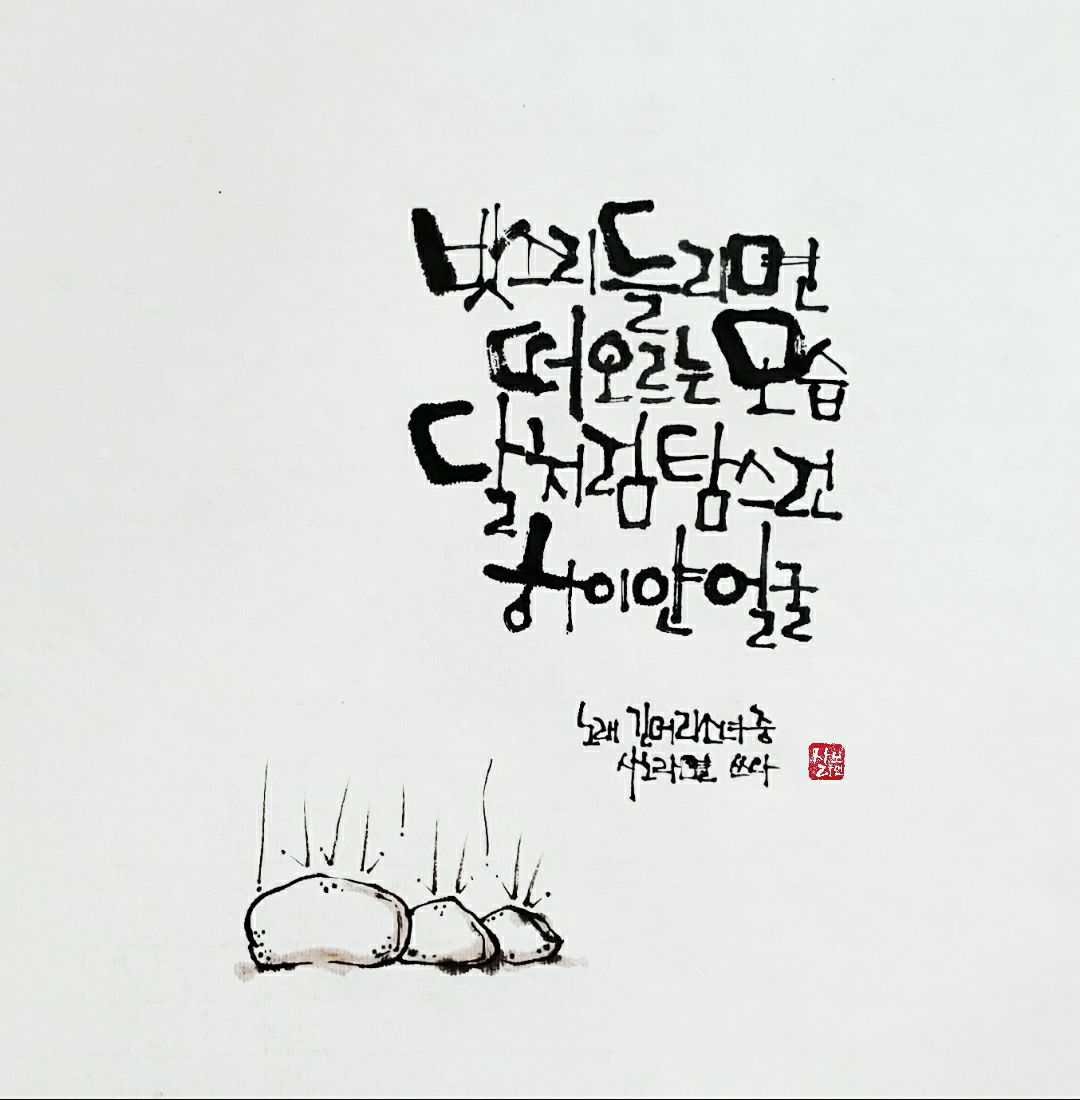 빗소리 들리면
떠오르는 모습
달처럼 탐스런
하이얀 얼굴
노래 긴머리소녀 중
쓰다